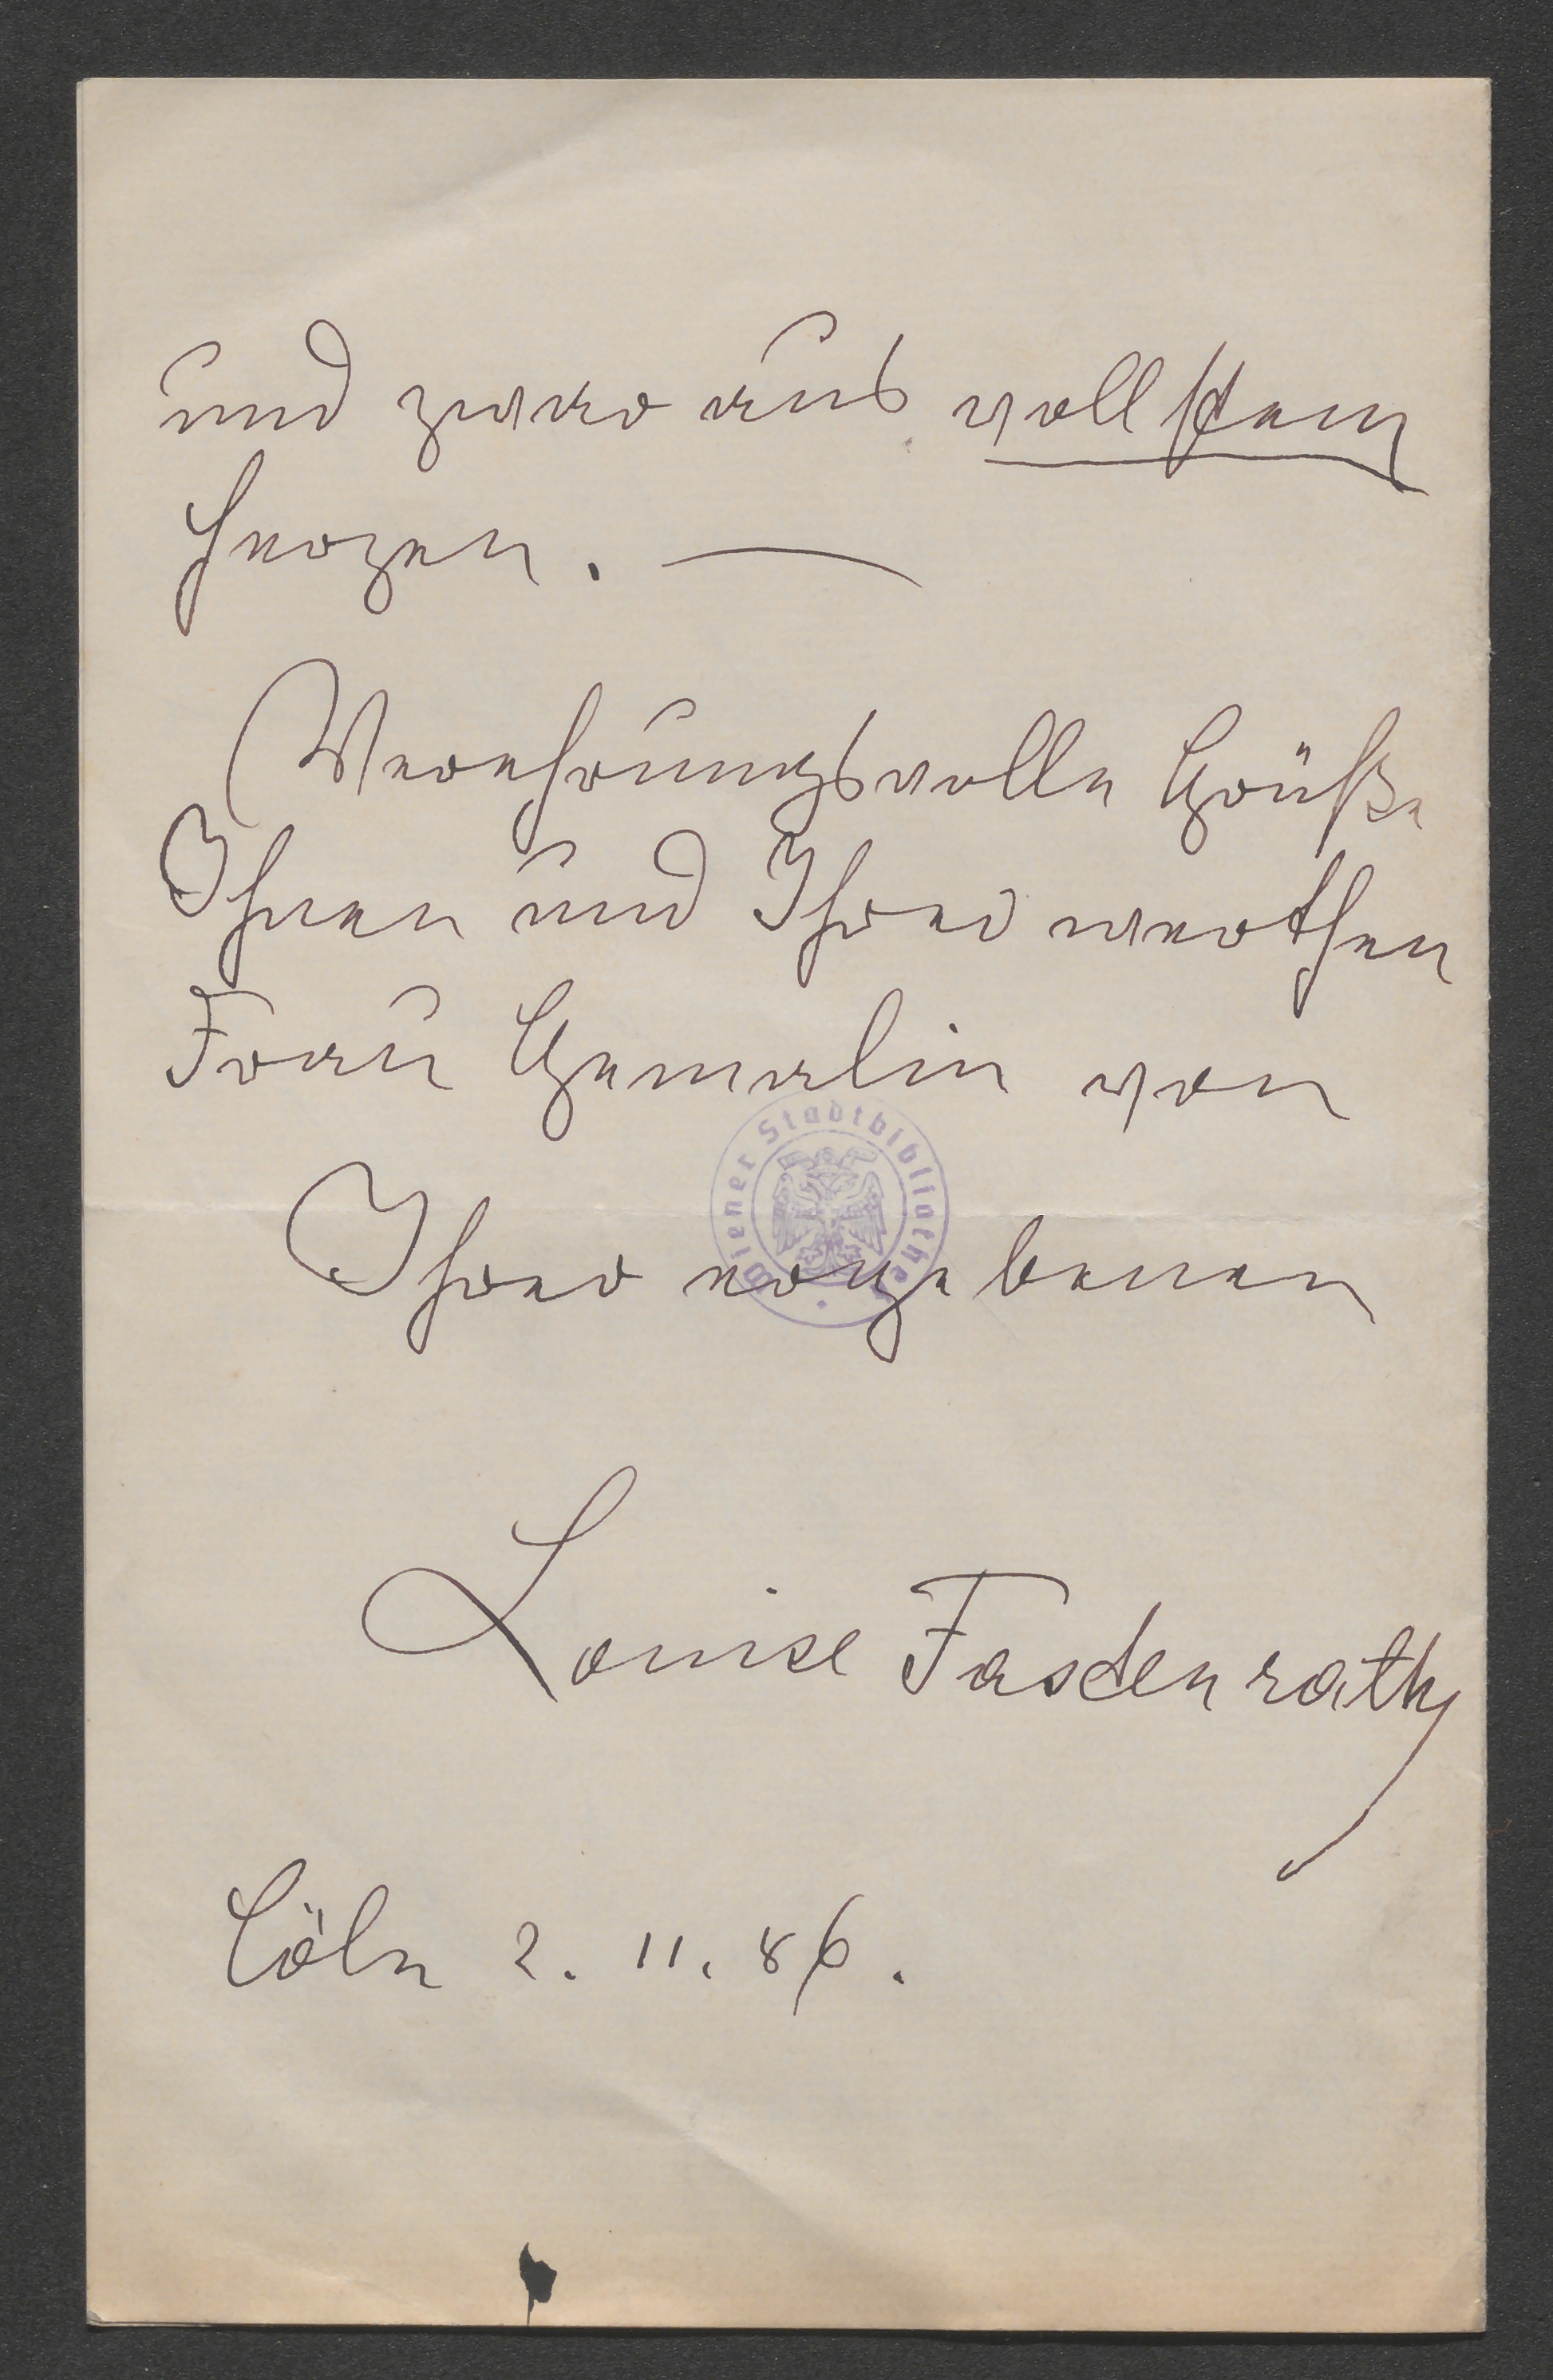 und zwar aus vollstem
Herzen. —
Verehrungsvolle Grüße
Ihnen und Ihrer werthen
Frau Gemalin von
Wiener Stadtbibliothek
Ihrer ergebenen
Louise Fastenrath
Cöln 2. 11. 86.